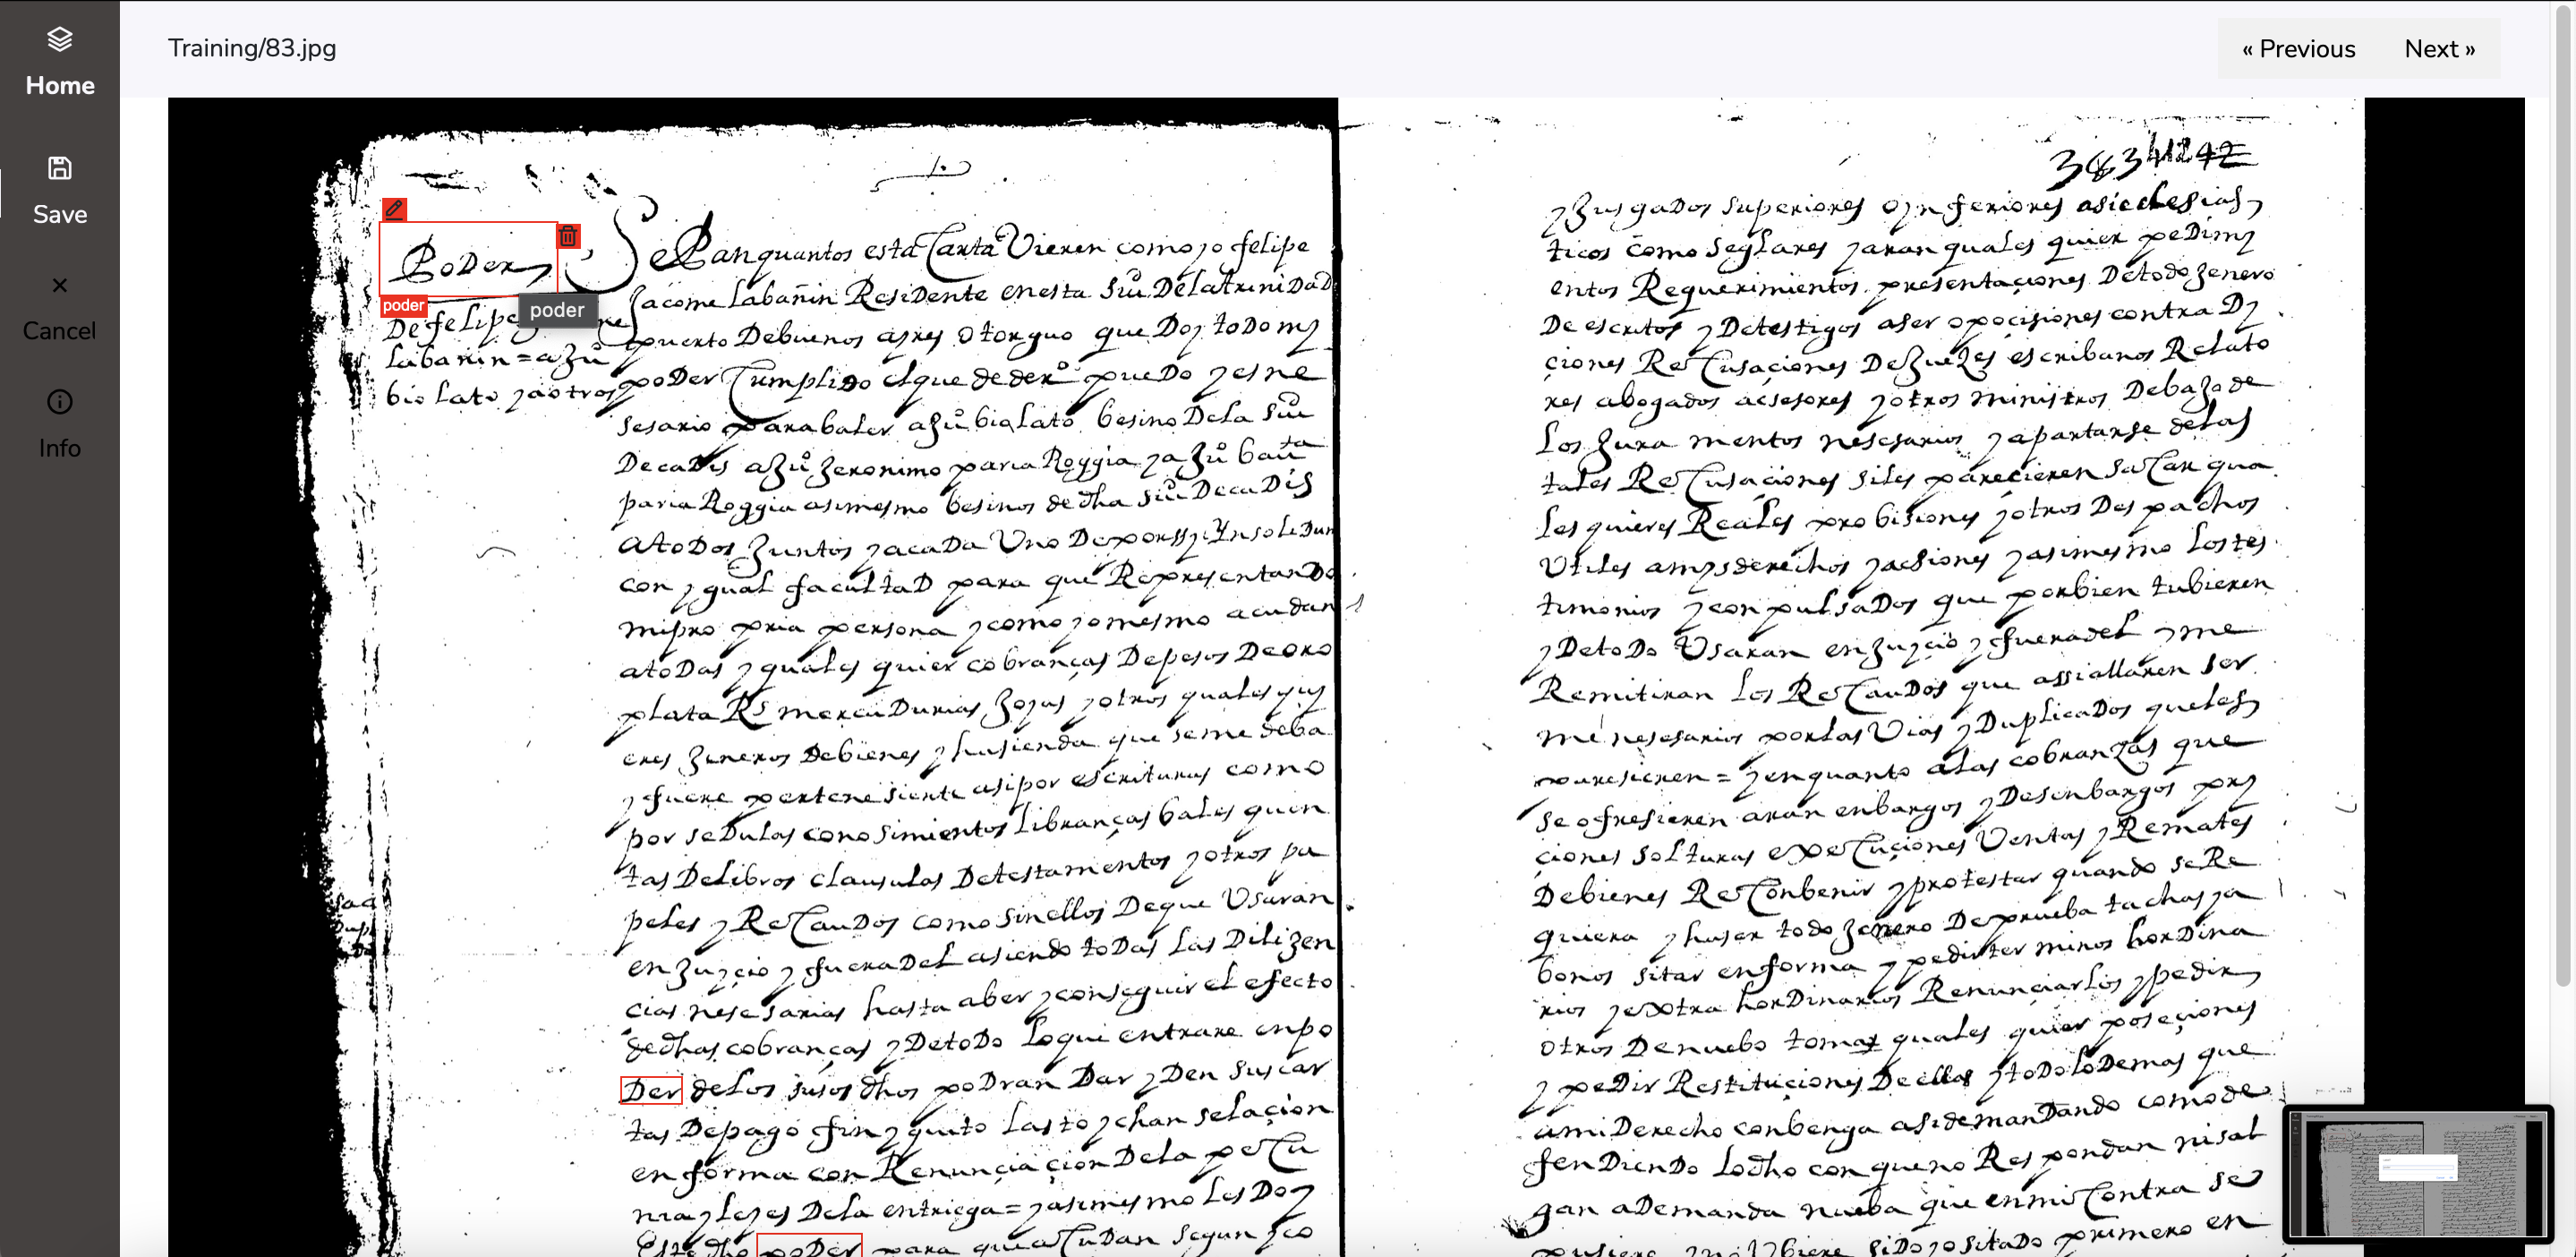 Home
Save
Cancel
Info
Training/83.jpg
« Previous
Next »
Poder
poder
poder
De felipe
labañin = a Ju
bio lato y a otros
Sepan quantos esta Carta Vieren como yo felipe
Jacome labañin Residente en esta Siu De la trinidaD
puerto De buenos ayres otorguo que Doy toDo my
poDer Cumplido el que de der puedo y es ne
sesario para baler a Ju biolato besino De la Siu
De caDis a Ju Jeronimo paria Roggia y a Ju bauta
paria Roggia asimesmo besinos de dha Siu De caDis
A toDos Juntos y a caDa Uno De por ssi Ynsolidun
con ygual facultaD para que Representando
mi propria persona y como yo mesmo acudan
a toDas y quales quier cobranças De pesos De oro
plata Rs mercaDurias Joyas y otros quales qui
eres Jeneros De bienes y hasienda que se me deba
y fuere pertenesiente asi por escrituras como
por seDulas conosimientos libranças bales quen
tas De libros clausulas De testamentos y otros pa
peles y ResCauDos como sin ellos De que Usaran
en Juyçio y fuera Del asiendo toDas las Dilijen
cias nesesarias hasta aber y conseguir el efecto
de dhas cobranças y De toDo lo que entrare en po
Der de los susos dhos poDran Dar y Den sus car
tas De pago fin y quito lasto y chanselaçion
en forma con Renunçiaçion De la peCu
nia y leyes De la entriega = y asimesmo les Doy
Este dho poDer para que aCuDan segun yo
383 412 42
y Jusgados superiores o ynferiores asi eclesias
ticos como seglares y aran quales quier pedimy
entos Requerimientos presentaçiones De todo Jenero
De escritos y De testigos aser opoçisiones contra Dy
çiones ReCusaçiones De Juezes escribanos Relato
res abogados acsesores y otros ministros Debajo de
los Juramentos nesesarios y apartarse de las
tales ReCusaçiones si les pareçieren saCar qua
les quieres Reales probisiones y otros Despachos
Utiles a mys derechos y acsiones y asimesmo los tes
timonios y conpulsaDos que por bien tubieren
y De toDo Usaran en Juyçio y fuera del y me
Remitiran los ResCauDos que assi allaren ser
me nesesarios por las Vias y DuplicaDos que les
paresieren = y en quanto a las cobranzas que
se ofresieren aran enbargos y Desenbargos pry
çiones solturas exeCuçiones Ventas y Remates
De bienes ResConbenir y protestar quando se Re
quiera y haser todo Jenero De prueba tachas y a
bonos sitar en forma y pedir terminos hordina
rios y extra horDinarios Renunçiarlos y pedir
otros De nuebo tomar quales quier poseçiones
y peDir Restituçiones De ellas y toDo lo Demas que
a mi Derecho conbenga asi demandando como de
fenDienDo lo dho con que no Respondan ni sal
gan a Demanda nueba que en mi Contra se
pusiere y no Ubiere siDo yo sitado primero en